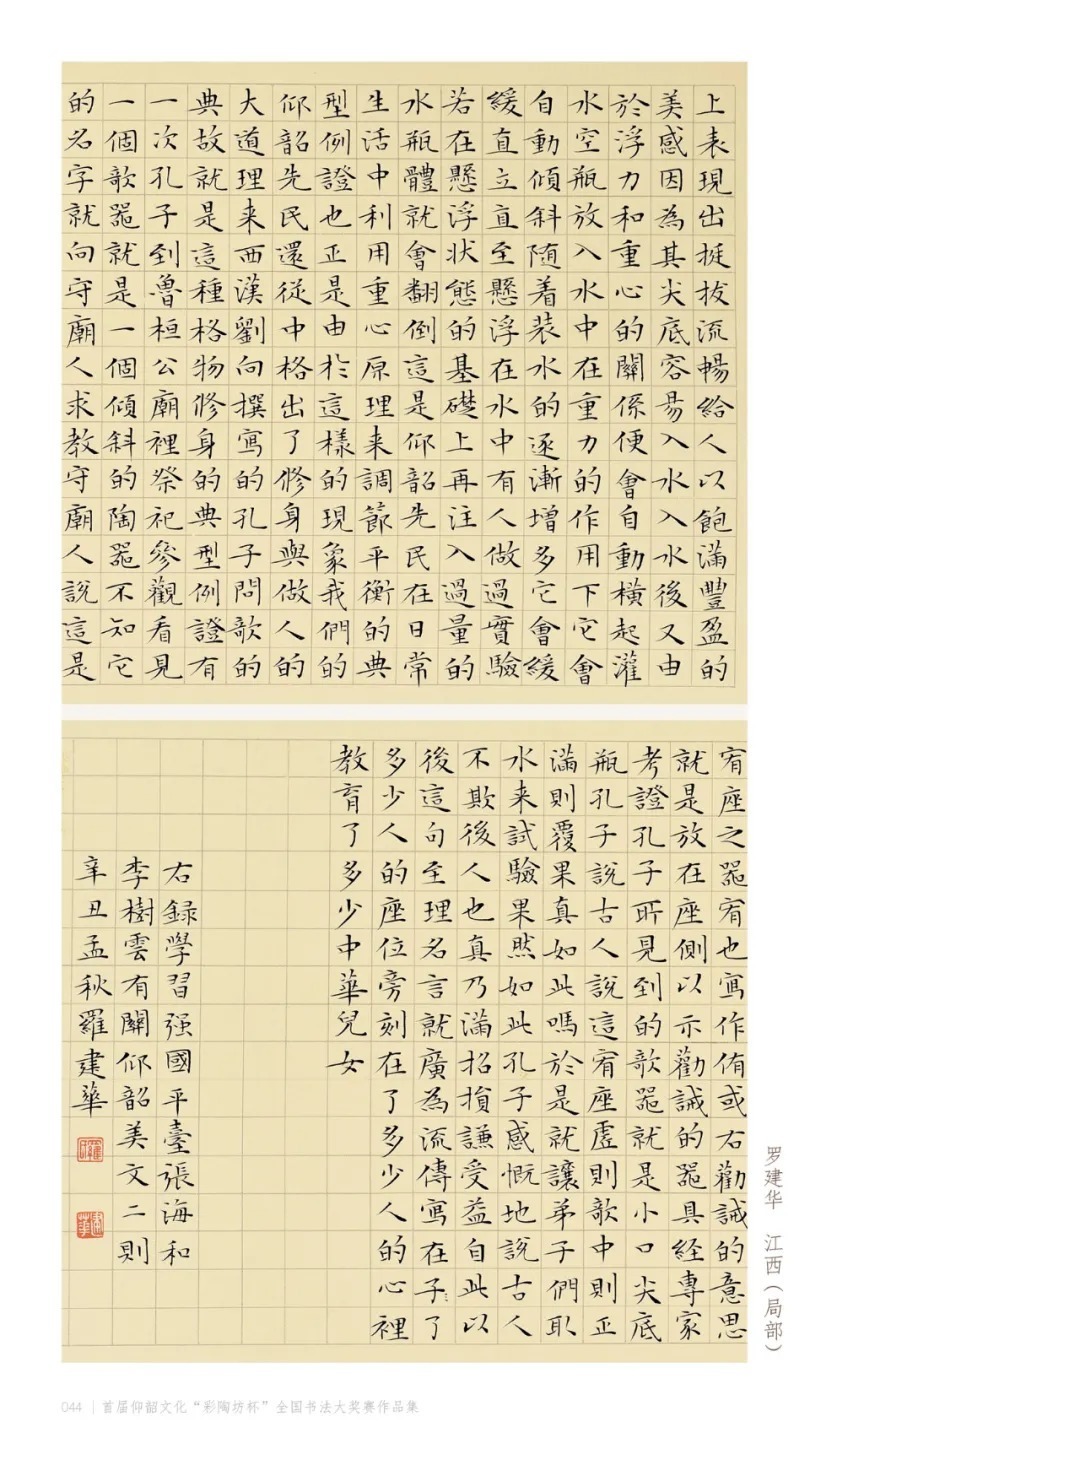 上表現出挺拔流暢給人以飽滿豐盈的
美感因為其尖底容易入水入水後又由
於浮力和重心的關係便會自動橫起灌
水空瓶放入水中在重力的作用下它會
自動傾斜随着装水的逐漸增多它會緩
緩直立直至懸浮在水中有人做過實驗
若在懸浮状態的基礎上再注入過量的
水瓶體就會翻倒這是仰韶先民在日常
生活中利用重心原理来調節平衡的典
型例證也正是由於這樣的現象我們的
仰韶先民還從中格出了修身與做人的
大道理来西漢劉向撰寫的孔子問歌的
典故就是這種格物修身的典型例證有
一次孔子到魯桓公廟裡祭祀參觀看見
一個歌器就是一個傾斜的陶器不知它
的名字就向守廟人求教守廟人說這是
宥座之器宥也寫作侑或右勸誡的意思
就是放在座側以示勸誡的器具経專家
考證孔子所見到的歌器就是小口尖底
瓶孔子說古人說這宥座虛則歌中則正
滿則覆果真如此嗎於是就讓弟子們取
水来試驗果然如此孔子感慨地說古人
不欺後人也真乃滿招損謙受益自此以
後這句至理名言就廣為流傳寫在子了
多少人的座位旁刻在了多少人的心裡
教育了多少中華兒女
右録學習强國平臺張海和
李樹雲有關仰韶美文二則
辛丑孟秋羅建華
罗建华 江西（局部）
044 | 首届仰韶文化“彩陶坊杯”全国书法大奖赛作品集